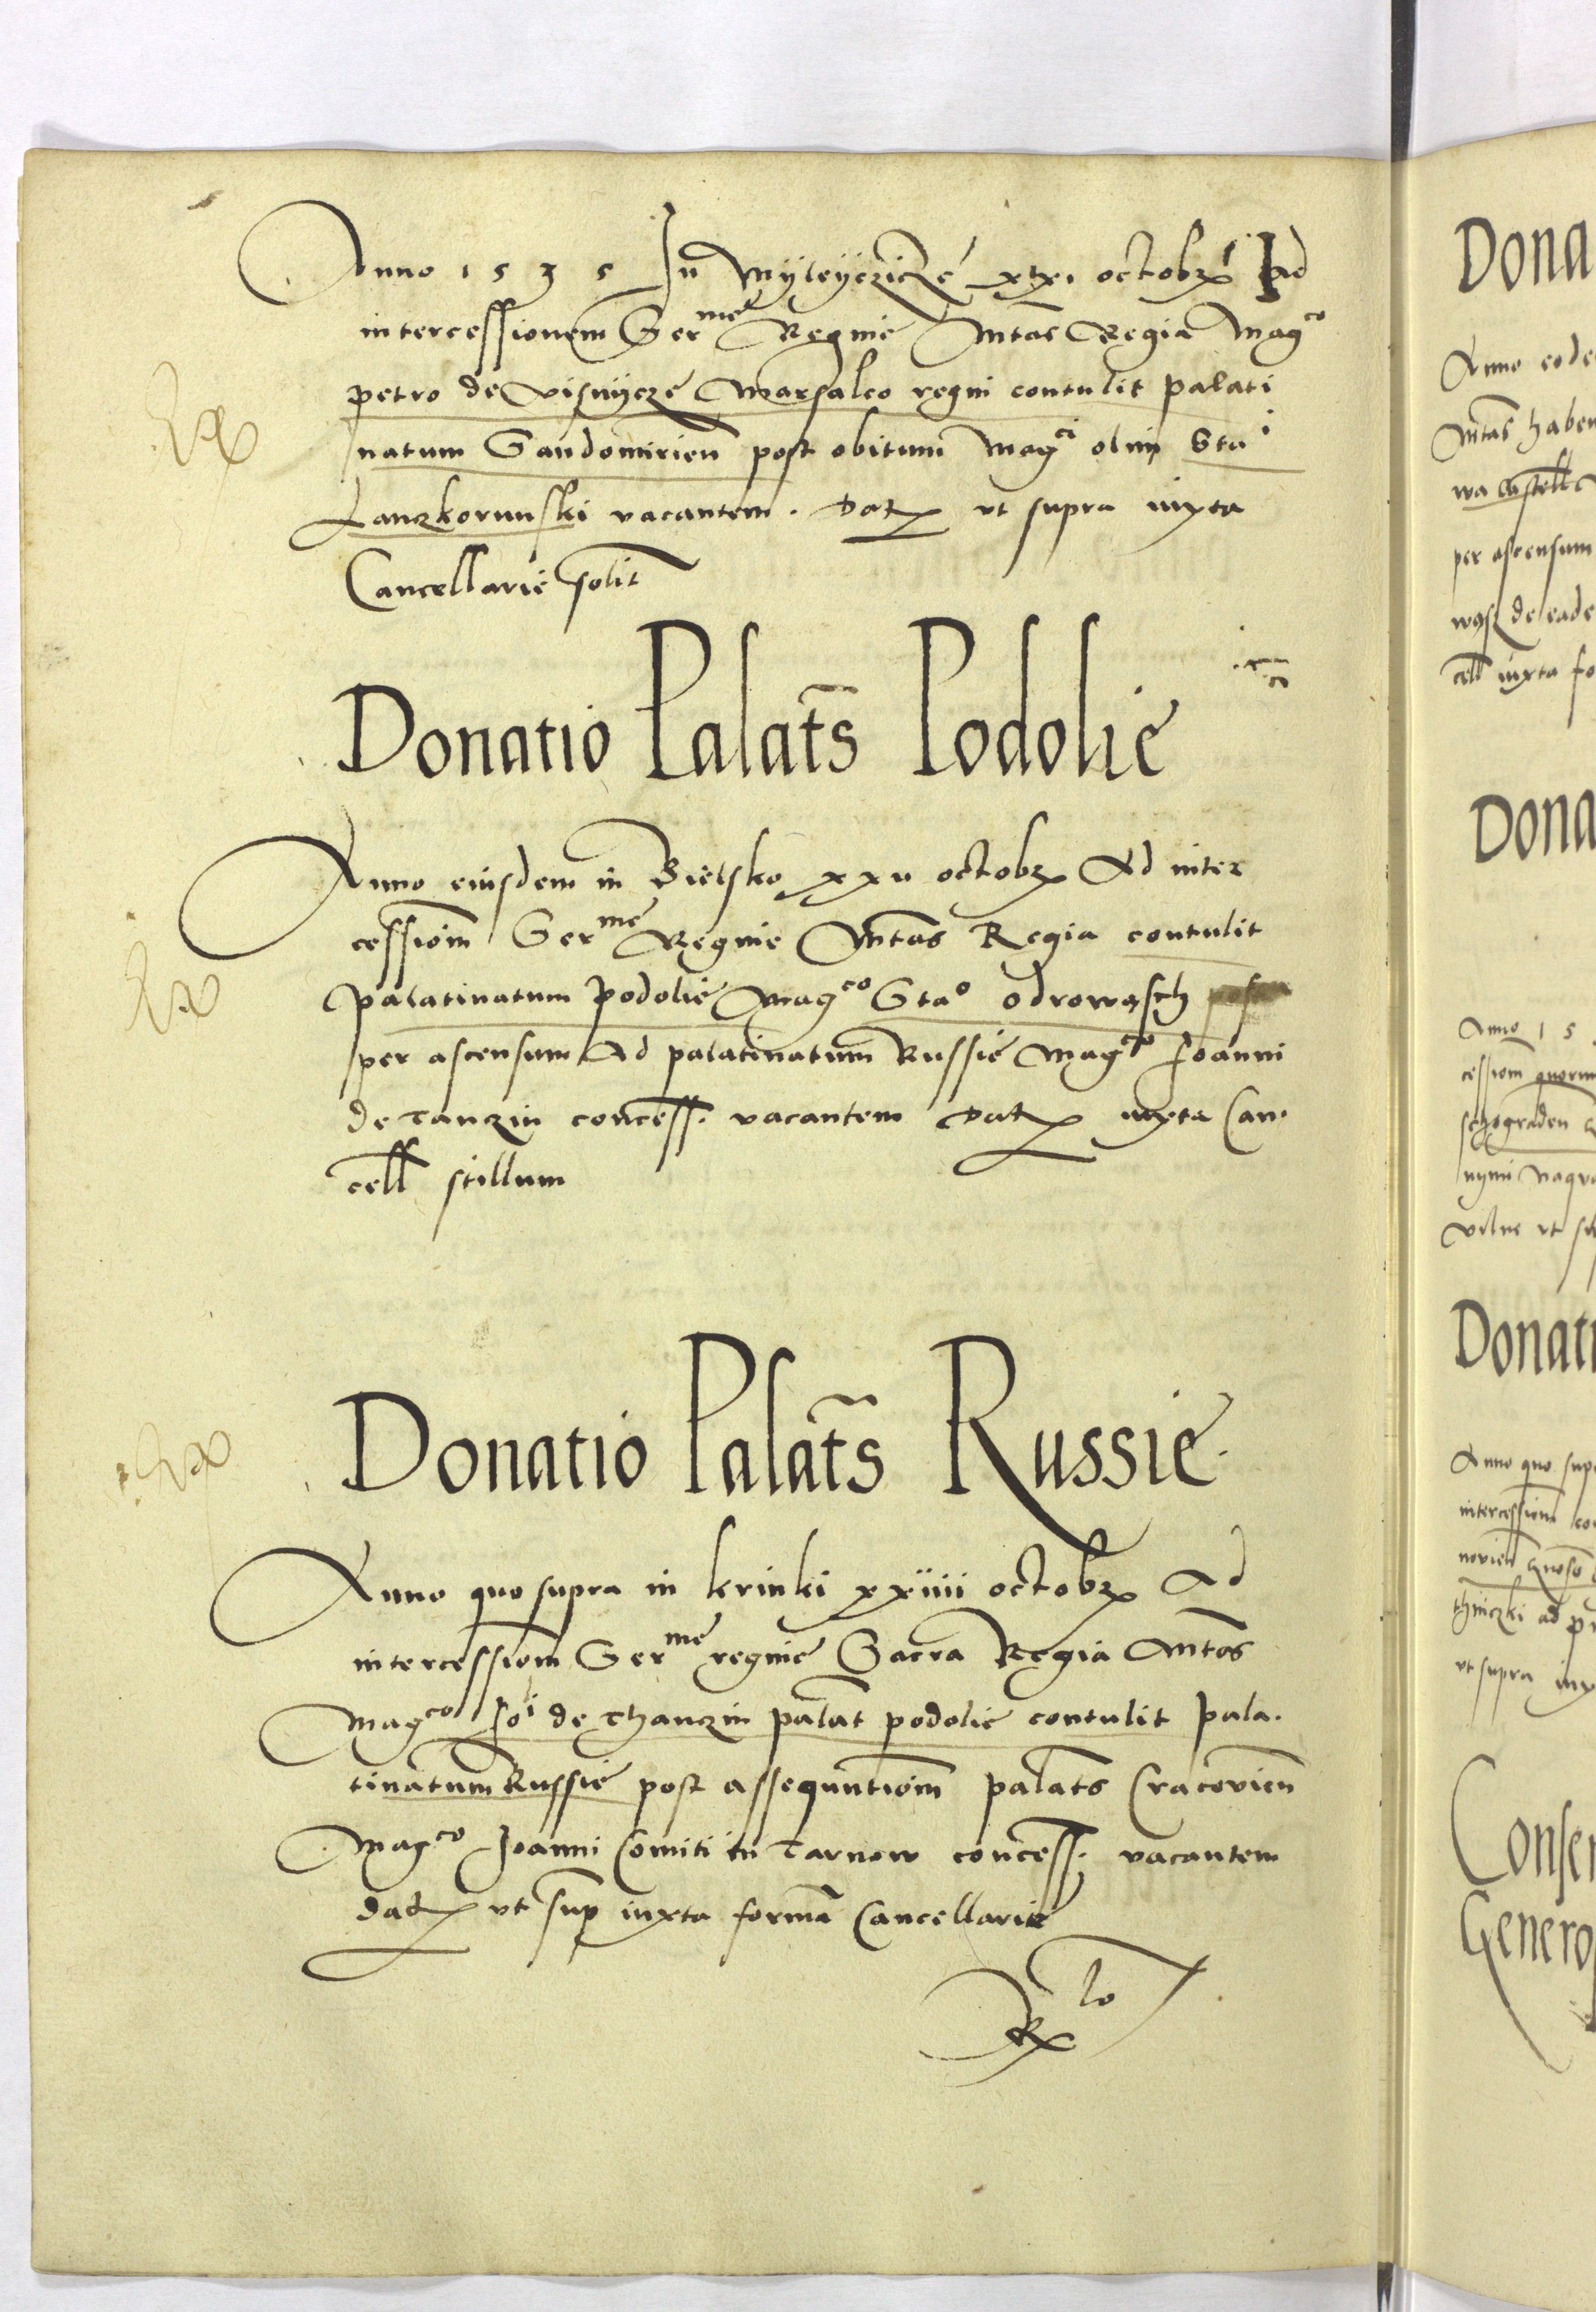 Anno 1535 In Myleyczicze xxi octobr Ad
intercessionem Ser^me Regine Mtas Regia Mag^co
petro de Visnycze Marsalco regni contulit palati
natum Sandomirien post obitum Mag^ci olim Sta^i
Lanzkorunski vacantem. Dat ut supra iuxta
Cancellarie solit
Donatio Palat̃s Podolie
Anno eiusdem in Bielsko xxv octobr Ad inter
cessiom Ser^me Regine Mtas Regia contulit
palatinatum podolie Mag^co Sta^o odrowąsch
per ascensum Ad palatinatum Russie Mag^co Joanni
de Tanzin concess. vacantem Dat iuxta Can
cell stillum
Donatio Palat̃s Russie
Anno quo supra in krinki xxiiii octobr Ad
intercessiom Ser^me regine Sacra Regia Mtas
Mag^co Jo^i de Thanzin palat podolie contulit pala
tinatum Russie post assequutiom palats Cracovien
Mag^co Joanni Comiti in Tarnow concess. vacantem
dat ut sup iuxta forma Cancellarie
Dona
Anno eode
Mtas haben
wa Castell
per ascensum
de eade
cell iuxta fo
Dona
Anno 15
cessiom quorum
ut s
Donati
Anno quo supr
intercessiom co
ad p
ut supra iux
Conser
Genero